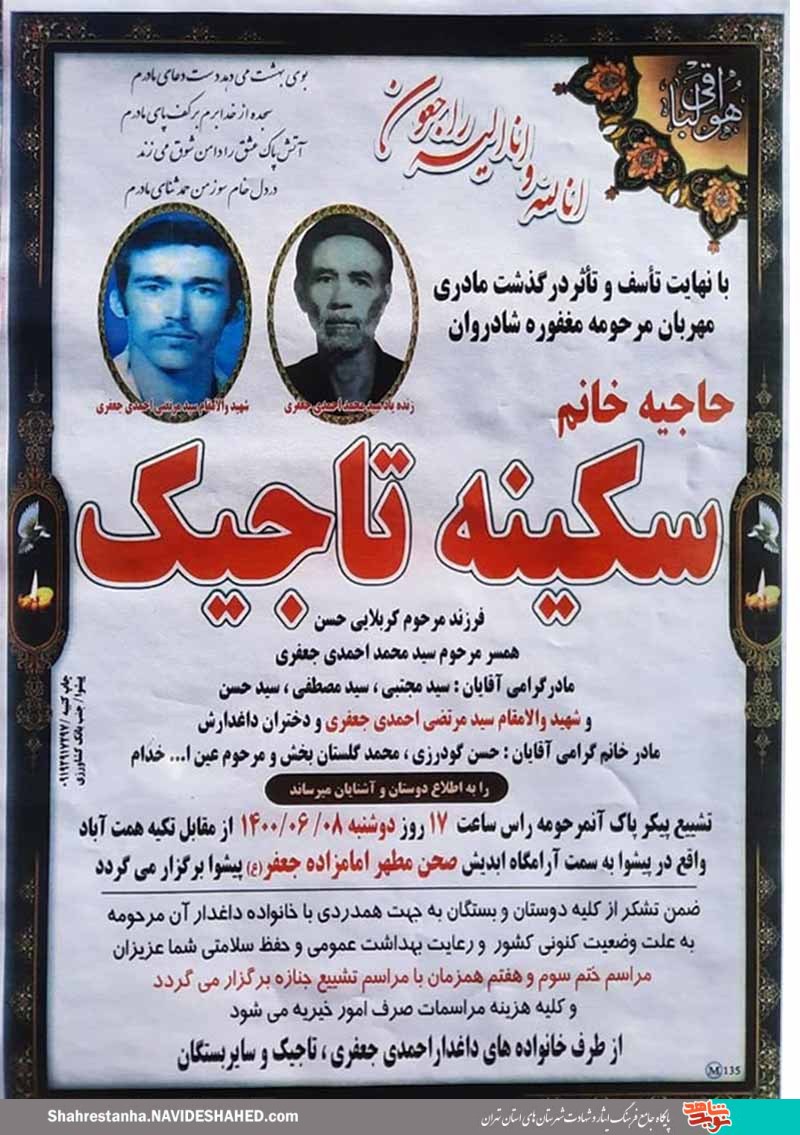 هو الباقی
انا لله و انا الیه راجعون
بوی بهشت می دهد دست دعای مادرم
سجده از خدا برم بر کف پای مادرم
آتش پاک عشق را دامن شوق می زند
در دل خام سوز من حمد ثنای مادرم
با نهایت تأسف و تأثر درگذشت مادری
مهربان مرحومه مغفوره شادروان
زنده یاد سید محمد احمدی جعفری
شهید والامقام سید مرتضی احمدی جعفری
حاجیه خانم
سکینه تاجیک
فرزند مرحوم کربلایی حسن
همسر مرحوم سید محمد احمدی جعفری
مادر گرامی آقایان : سید مجتبی ، سید مصطفی ، سید حسن
و شهید والامقام سید مرتضی احمدی جعفری و دختران داغدارش
مادر خانم گرامی آقایان : حسن گودرزی ، محمد گلستان بخش و مرحوم عین ا... خدام
را به اطلاع دوستان و آشنایان میرساند
تشییع پیکر پاک آنمرحومه راس ساعت ۱۷ روز دوشنبه ۱۴۰۰/۰۶/۰۸ از مقابل تکیه همت آباد
واقع در پیشوا به سمت آرامگاه ابدیش صحن مطهر امامزاده جعفر (ع) پیشوا برگزار می گردد
ضمن تشکر از کلیه دوستان و بستگان به جهت همدردی با خانواده داغدار آن مرحومه
به علت وضعیت کنونی کشور و رعایت بهداشت عمومی و حفظ سلامتی شما عزیزان
مراسم ختم سوم و هفتم همزمان با مراسم تشییع جنازه برگزار می گردد
و کلیه هزینه مراسمات صرف امور خیریه می شود
از طرف خانواده های داغدار احمدی جعفری ، تاجیک و سایر بستگان
چاپ کتیبه / ۰۹۱۹۲۹۱۷۲۹۷
پیشوا / جنب بانک کشاورزی
M 135
Shahrestanha.NAVIDESHAHED.com
پایگاه جامع فرهنگ ایثار و شهادت شهرستان های استان تهران
نوید شاهد